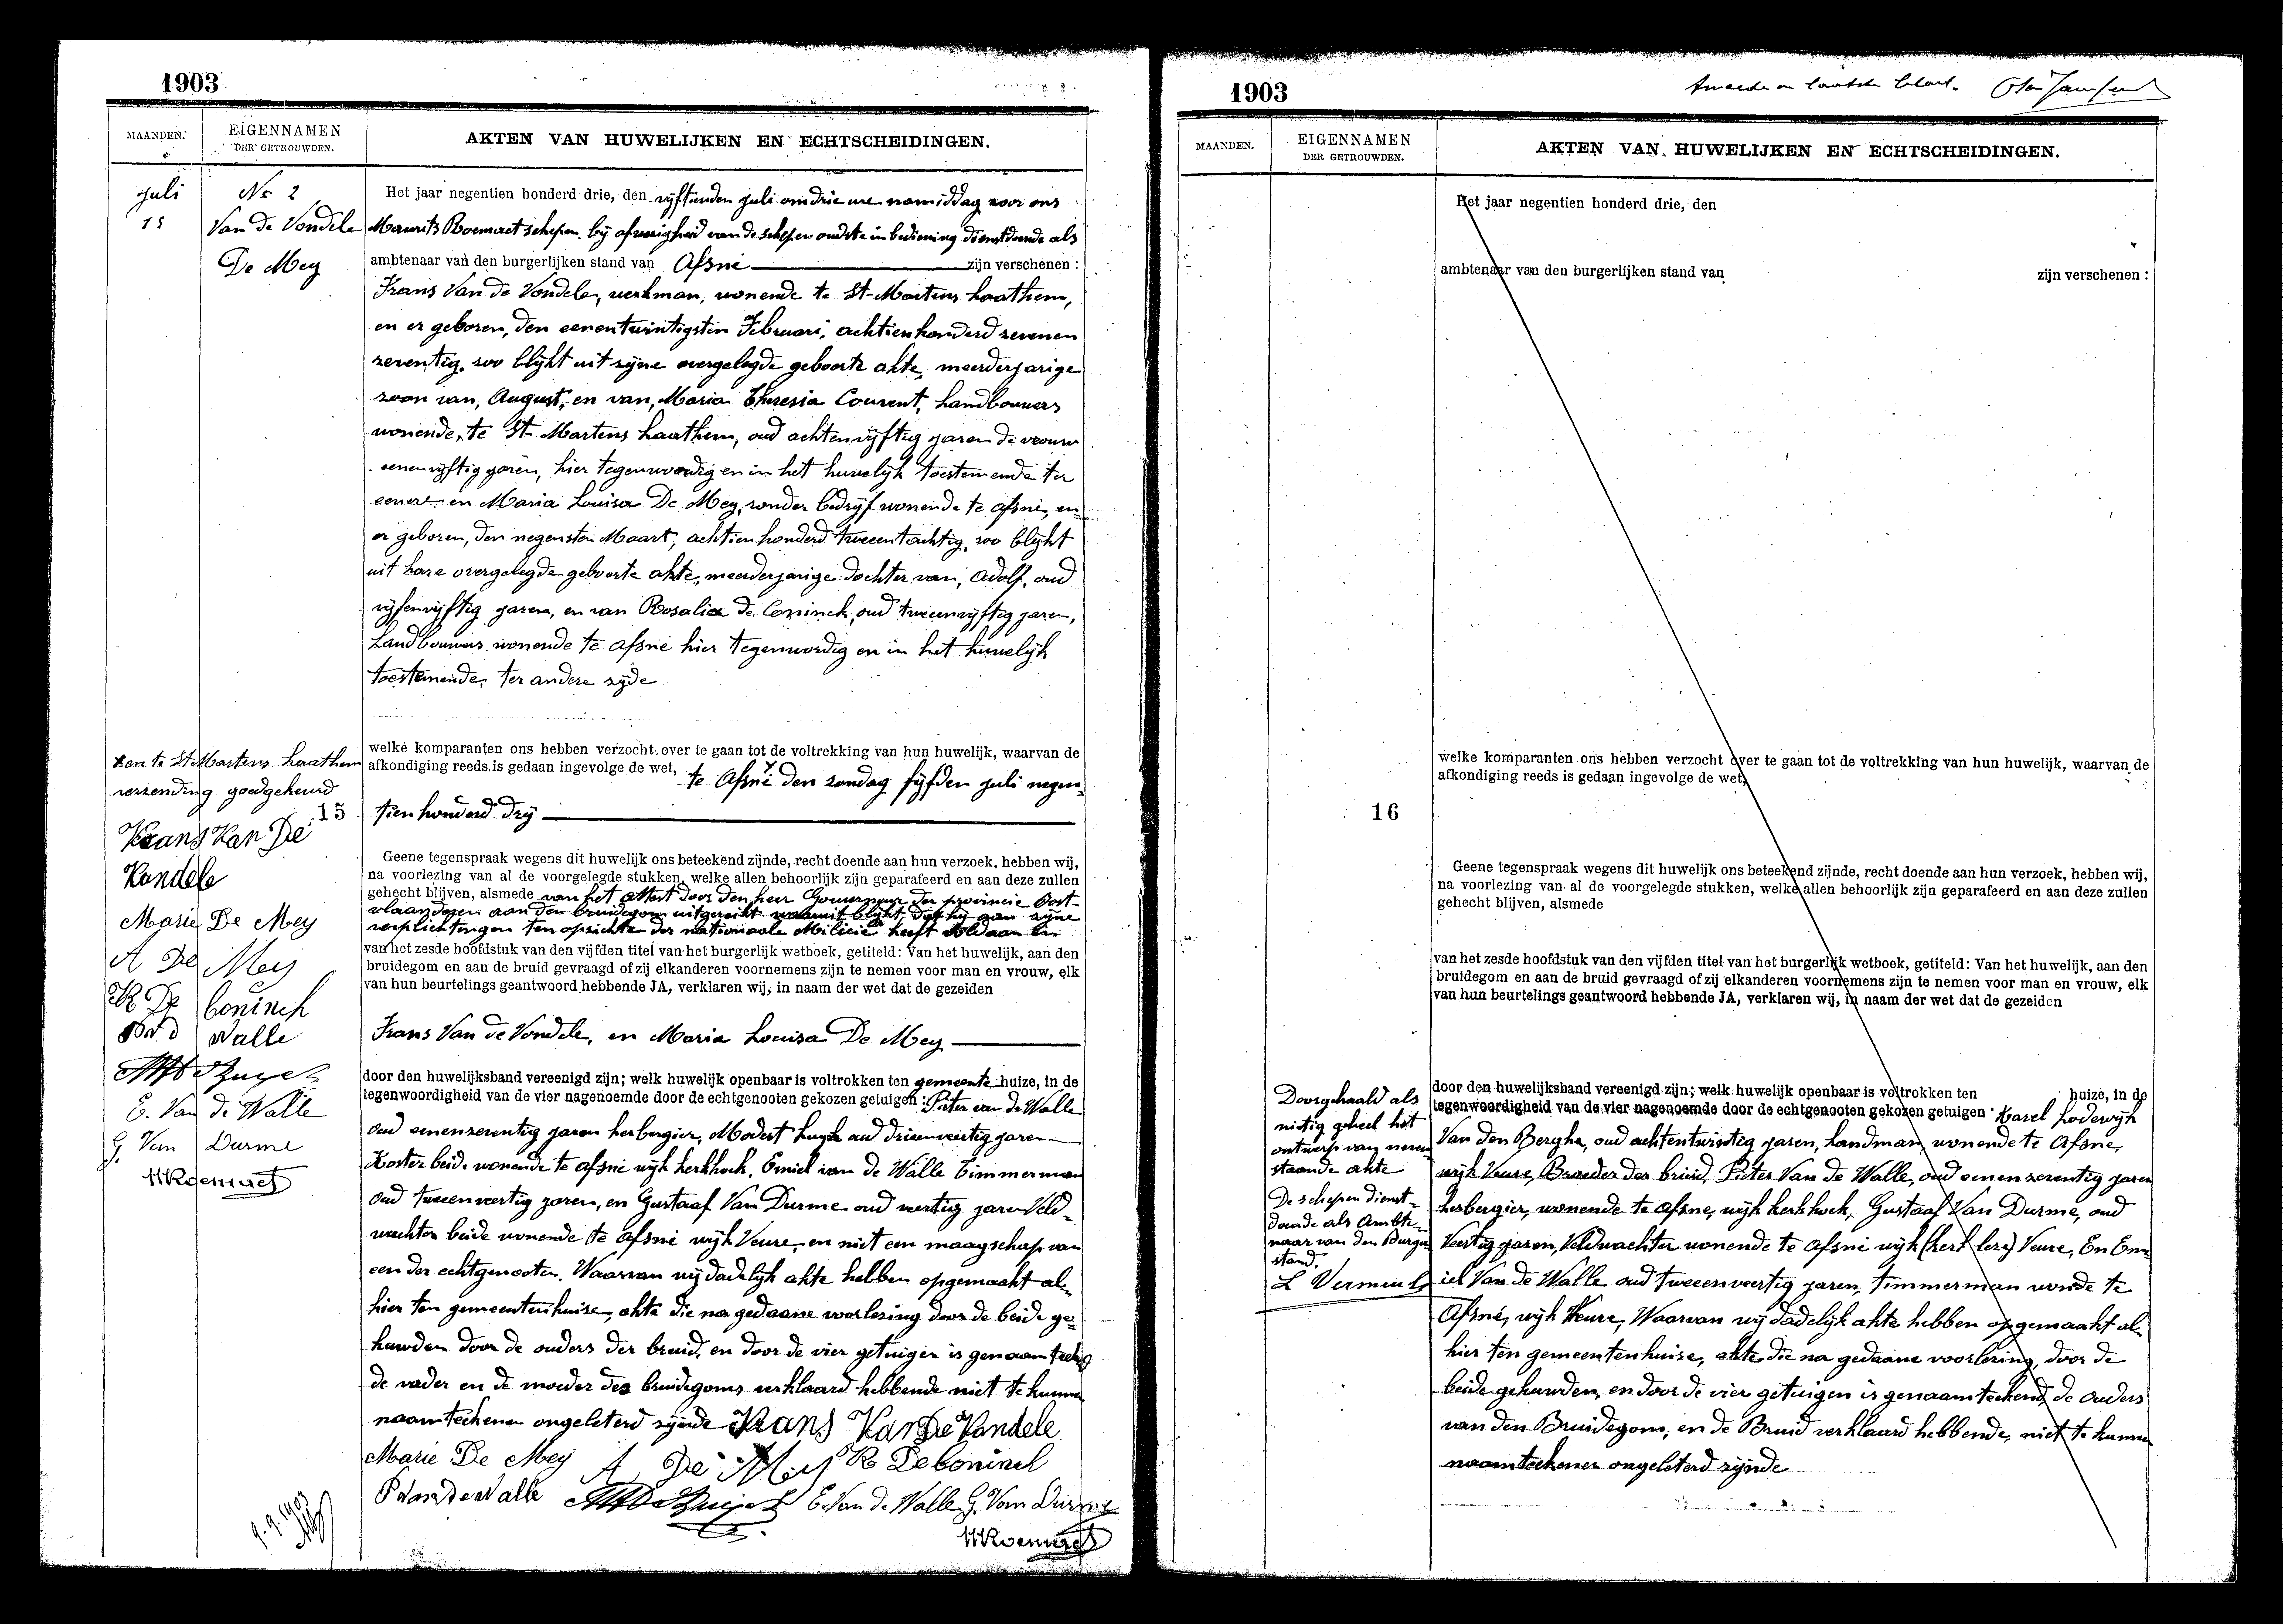 1903
MAANDEN.
EIGENNAMEN
DER GETROUWDEN.
AKTEN VAN HUWELIJKEN EN ECHTSCHEIDINGEN.
juli
15
No 2
Van de Vondele
De Mey
Het jaar negentien honderd drie, den vijftienden juli om drie ure namiddag voor ons
Maurits Roemaet schepen bij afwezigheid van de schepen oudste in bediening dienstdoende als
ambtenaar van den burgerlijken stand van Afsné zijn verschenen :
Frans Van de Vondele, werkman, wonende te St-Martens Laathem,
en er geboren, den eenentwintigsten Februari, achtienhonderd zevenen
zeventig, zoo blijkt uit zijne overgelegde geboorte akte, meerderjarige
zoon van, August, en van, Maria Theresia Courent, Landbouwers
wonende, te St-Martens Laathem, oud achtenvijftig jaren de vrouw
eenenvijftig jaren, hier tegenwoordig en in het huwelijk toestemende ter
eenere en Maria Louisa De Mey, zonder bedrijf wonende te Afsné, en
er geboren, den negensten Maart, achtien honderd tweeentachtig, zoo blijkt
uit hare overgelegde geboorte akte, meerderjarige dochter van, Adolf, oud
vijfenvijftig jaren, en van Rosalia de Coninck, oud tweeenvijftig jaren,
Landbouwers wonende te Afsné hier tegenwordig en in het huwelijk
toestemende, ter andere zijde
welke komparanten ons hebben verzocht over te gaan tot de voltrekking van hun huwelijk, waarvan de
afkondiging reeds is gedaan ingevolge de wet, te Afsné den zondag fijfden juli negen-
tien honderd drij
en te St Martens Laathem
verzending goedgekeurd
15
Frans Van De
Vandele
Marie De Mey
A De Mey
R De Coninck
Walle
E. Van de Walle
G. Van Durme
MRoemaet
Geene tegenspraak wegens dit huwelijk ons beteekend zijnde, recht doende aan hun verzoek, hebben wij,
na voorlezing van al de voorgelegde stukken, welke allen behoorlijk zijn geparafeerd en aan deze zullen
gehecht blijven, alsmede van het attest door den heer Gouverneur der provincie Oost-
vlaanderen aan den bruidegom uitgereikt waaruit blijkt dat hij aan zijne
verplichtingen ten opzichte der nationaale Milicie heeft voldaan en
van het zesde hoofdstuk van den vijfden titel van het burgerlijk wetboek, getiteld: Van het huwelijk, aan den
bruidegom en aan de bruid gevraagd of zij elkanderen voornemens zijn te nemen voor man en vrouw, elk
van hun beurtelings geantwoord hebbende JA, verklaren wij, in naam der wet dat de gezeiden
Frans Van de Vondele, en Maria Louisa De Mey
door den huwelijksband vereenigd zijn; welk huwelijk openbaar is voltrokken ten gemeente huize, in de
tegenwoordigheid van de vier nagenoemde door de echtgenooten gekozen getuigen : Pieter van de Walle
oud eenenzeventig jaren herbergier, Modest oud drieenveertig jaren
Koster beide wonende te Afsné wijk kerkhoek, Emiel van de Walle Timmerman
oud tweeenveertig jaren, en Gustaaf Van Durme oud veertig jaren Veld-
wachter beide wonende te Afsné wijk Veure, en niet een maagschap van
een der echtgenooten. Waarvan wij dadelijk akte hebben opgemaakt al-
hier ten gemeentenhuise, akte die na gedaane voorlezing door de beide ge-
huwden door de ouders der bruid, en door de vier getuigen is genaamteekend
de vader en de moeder des bruidegoms verklaard hebbende niet te kunnen
naamteekenen ongeleterd zijnde Frans Van De Vandele
Marie De Mey A De Mey R De Coninck
P Van De Walle E. Van de Walle G. Van Durme
MRoemaet
9.9.1903
1903
tweede en laatste blad.
MAANDEN.
EIGENNAMEN
DER GETROUWDEN.
AKTEN VAN HUWELIJKEN EN ECHTSCHEIDINGEN.
Het jaar negentien honderd drie, den
ambtenaar van den burgerlijken stand van zijn verschenen :
welke komparanten ons hebben verzocht over te gaan tot de voltrekking van hun huwelijk, waarvan de
afkondiging reeds is gedaan ingevolge de wet,
16
Geene tegenspraak wegens dit huwelijk ons beteekend zijnde, recht doende aan hun verzoek, hebben wij,
na voorlezing van al de voorgelegde stukken, welke allen behoorlijk zijn geparafeerd en aan deze zullen
gehecht blijven, alsmede
van het zesde hoofdstuk van den vijfden titel van het burgerlijk wetboek, getiteld: Van het huwelijk, aan den
bruidegom en aan de bruid gevraagd of zij elkanderen voornemens zijn te nemen voor man en vrouw, elk
van hun beurtelings geantwoord hebbende JA, verklaren wij, in naam der wet dat de gezeiden
Doorgehaald als
nietig geheel het
ontwerp van neven
staande akte
De schepen dienst-
doende als Ambte-
naar van den Burger
stand.
L Vermeul
door den huwelijksband vereenigd zijn; welk huwelijk openbaar is voltrokken ten huize, in de
tegenwoordigheid van de vier nagenoemde door de echtgenooten gekozen getuigen : Karel Lodewijk
Van den Berghe, oud achtentwintig jaren, Landman, wonende te Afsne,
wijk Veure, Broeder der bruid, Pieter Van de Walle, oud eenenzeventig jaren
herbergier, wonende te Afsne, wijk kerkhoek, Gustaaf Van Durme, oud
Veertig jaren, Veldwachter wonende te Afsné wijk Veure, En Em
iel Van de Walle oud tweeenveertig jaren, timmerman wonde te
Afsné, wijk Veure, Waarvan wij dadelijk akte hebben opgemaakt al-
hier ten gemeentenhuise, akte die na gedaane voorlezing, door de
beide gehuwden, en door de vier getuigen is genaamteekend, de ouders
van den Bruidegom, en de Bruid verklaard hebbende, niet te kunnen
naamteekenen ongeleterd zijnde